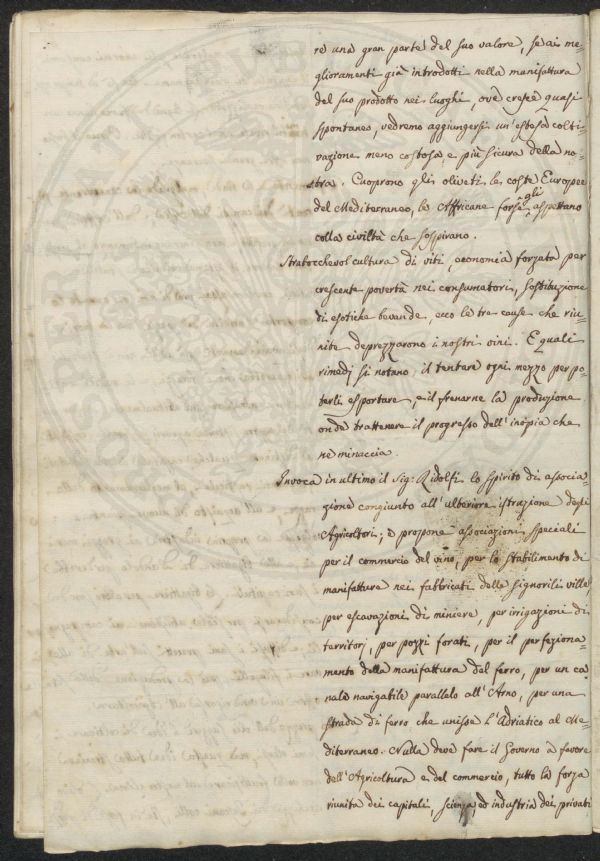 re una gran parte del suo valore, se ai me-
glioramenti già introdotti nella manifattura
del suo prodotto nei luoghi, ov'è cresce quasi
spontaneo, vedremo aggiungersi un'estesa colti-
vazione meno costosa e più sicura della no-
stra. Cuoprono gli oliveti le coste Europee
del Mediterraneo, le Affricane forse gli aspettano
colla civiltà che sospirano.
Strabocchevol cultura di viti, economia forzata per
crescente povertà nei consumatori, sostituzione
di esotiche bevande, ecco le tre cause che riu-
nite deprezzarono i nostri vini. E quali
rimedj si notano il tentare ogni mezzo per po-
terli esportare, e il frenarne la produzione
onde trattenere il progresso dell'inopia che
ne minaccia.
Invoca in ultimo il Sig: Ridolfi lo spirito di associa-
zione congiunto all'ulteriore istruzione degli
Agricoltori; e propone associazioni speciali
per il commercio del vino, per lo stabilimento di
manifatture nei fabbricati delle signorili ville,
per escavazioni di miniere, per irrigazioni di
territorj, per pozzi forati, per il perfeziona-
mento della manifattura del ferro, per un ca-
nale navigabile parallelo all'Arno, per una
strada di ferro che unisse l'Adriatico al Me-
diterraneo. Nulla deve fare il Governo a favore
dell'Agricoltura e del commercio, tutto la forza
riunita dei capitali, scienza ed industria dei privati